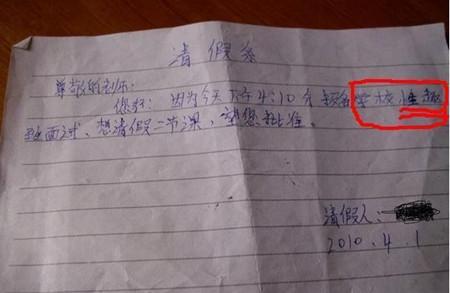 请假条
尊敬的老师：
您好：因为今天下午4:10分报名学校性趣
班面试、想请假二节课，望您批准。
请假人：
2010.4.1